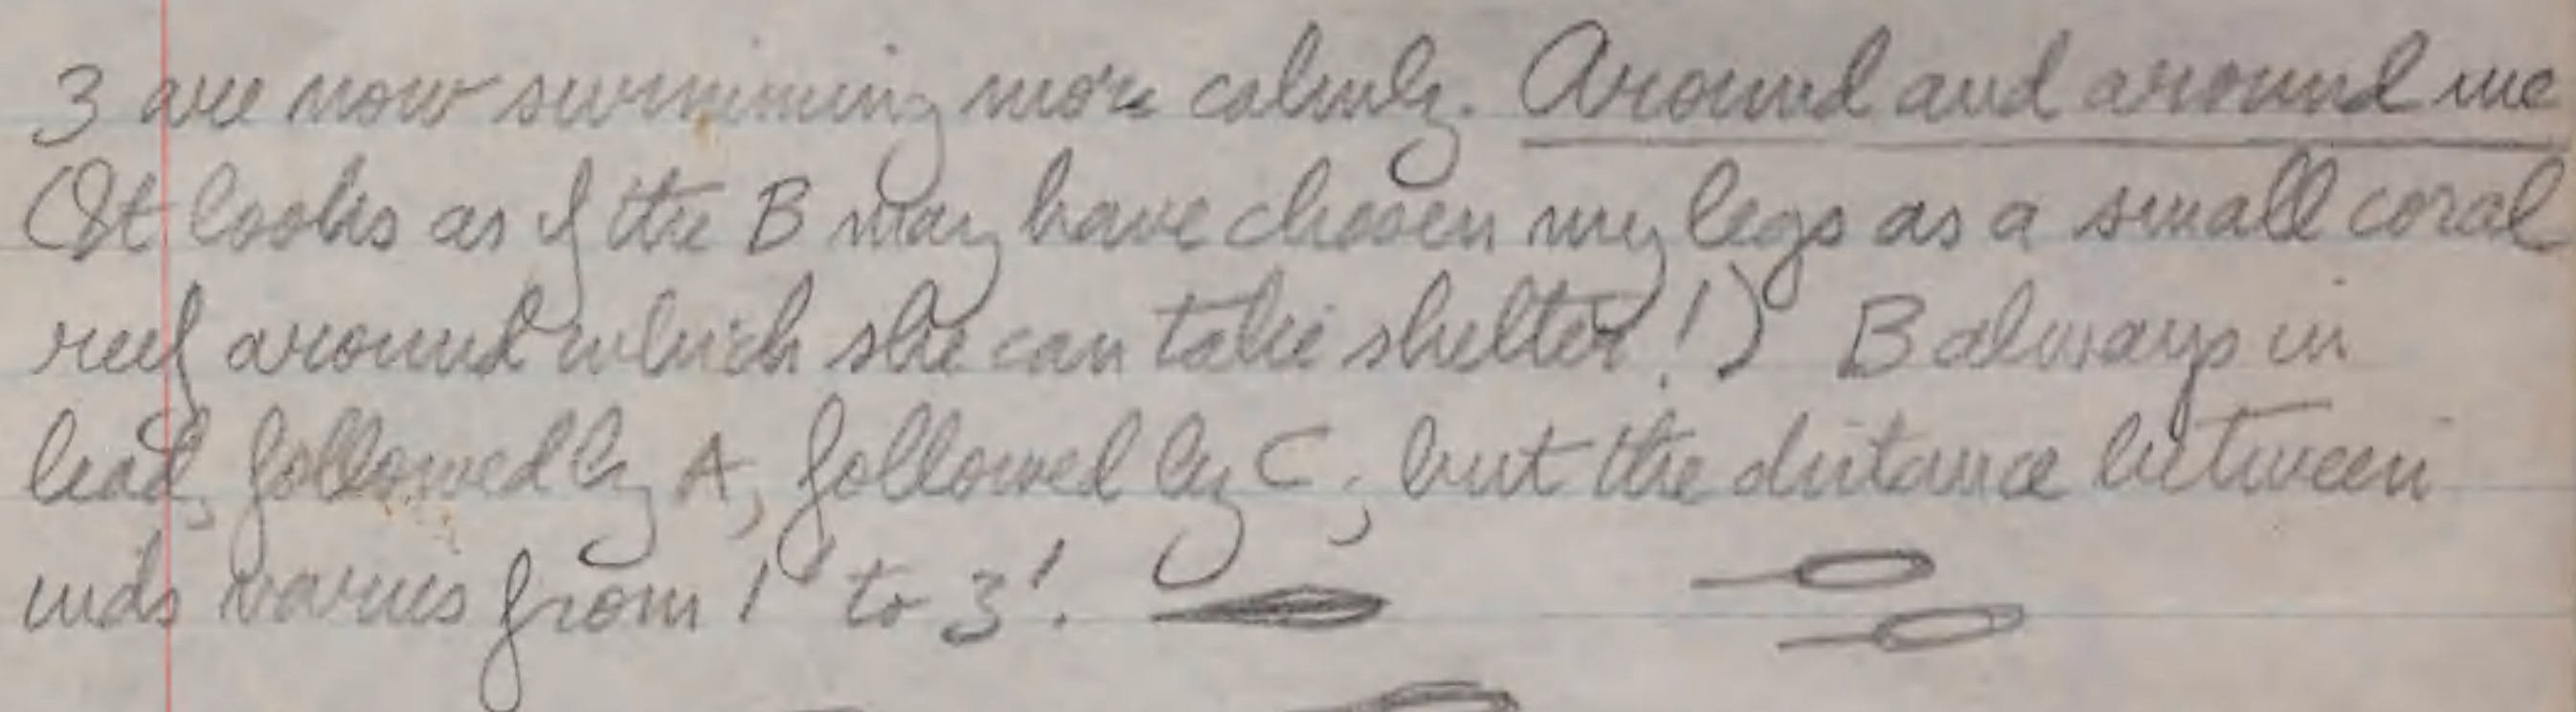 3 are now swimming more calmly. Around and around me
(It looks as if the B may have chosen my legs as a small coral
reef around which she can take shelter!) B always in
lead, followed by A, followed by C; but the distance between
inds varies from 1' to 3'.